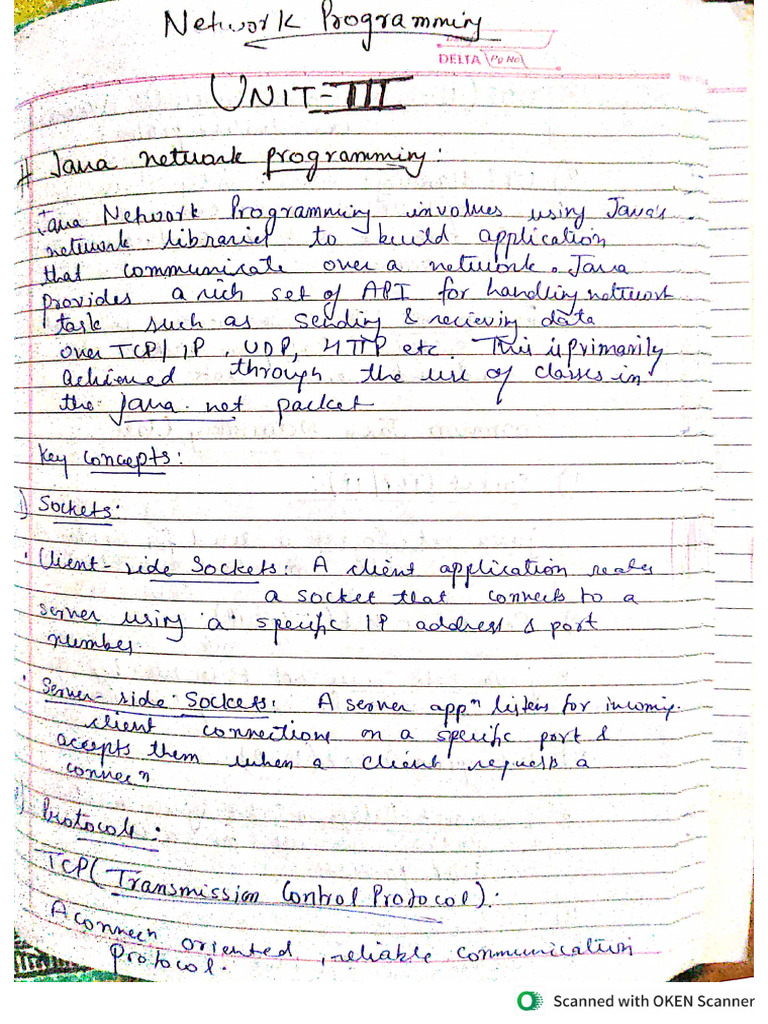 Network Programming
DELTA Pg No
UNIT-III
# Java network programming:
Java Network Programming involves using Java's
network libraries to build application
that communicate over a network. Java
provides a rich set of API for handling network
task such as sending & recieving data
over TCP/IP, UDP, HTTP etc. This is primarily
achieved through the use of classes in
the java.net packet
Key concepts:
1) Sockets:
• Client-side Sockets: A client application creates
a socket that connects to a
server using 'a' specific IP address & port
number.
• Server-side Sockets: A server appn listens for incoming
client connections on a specific port &
accepts them when a client requests a
connecn
2) Protocols:
TCP (Transmission Control Protocol):
A connecn oriented, reliable communication
Protocol.
Scanned with OKEN Scanner